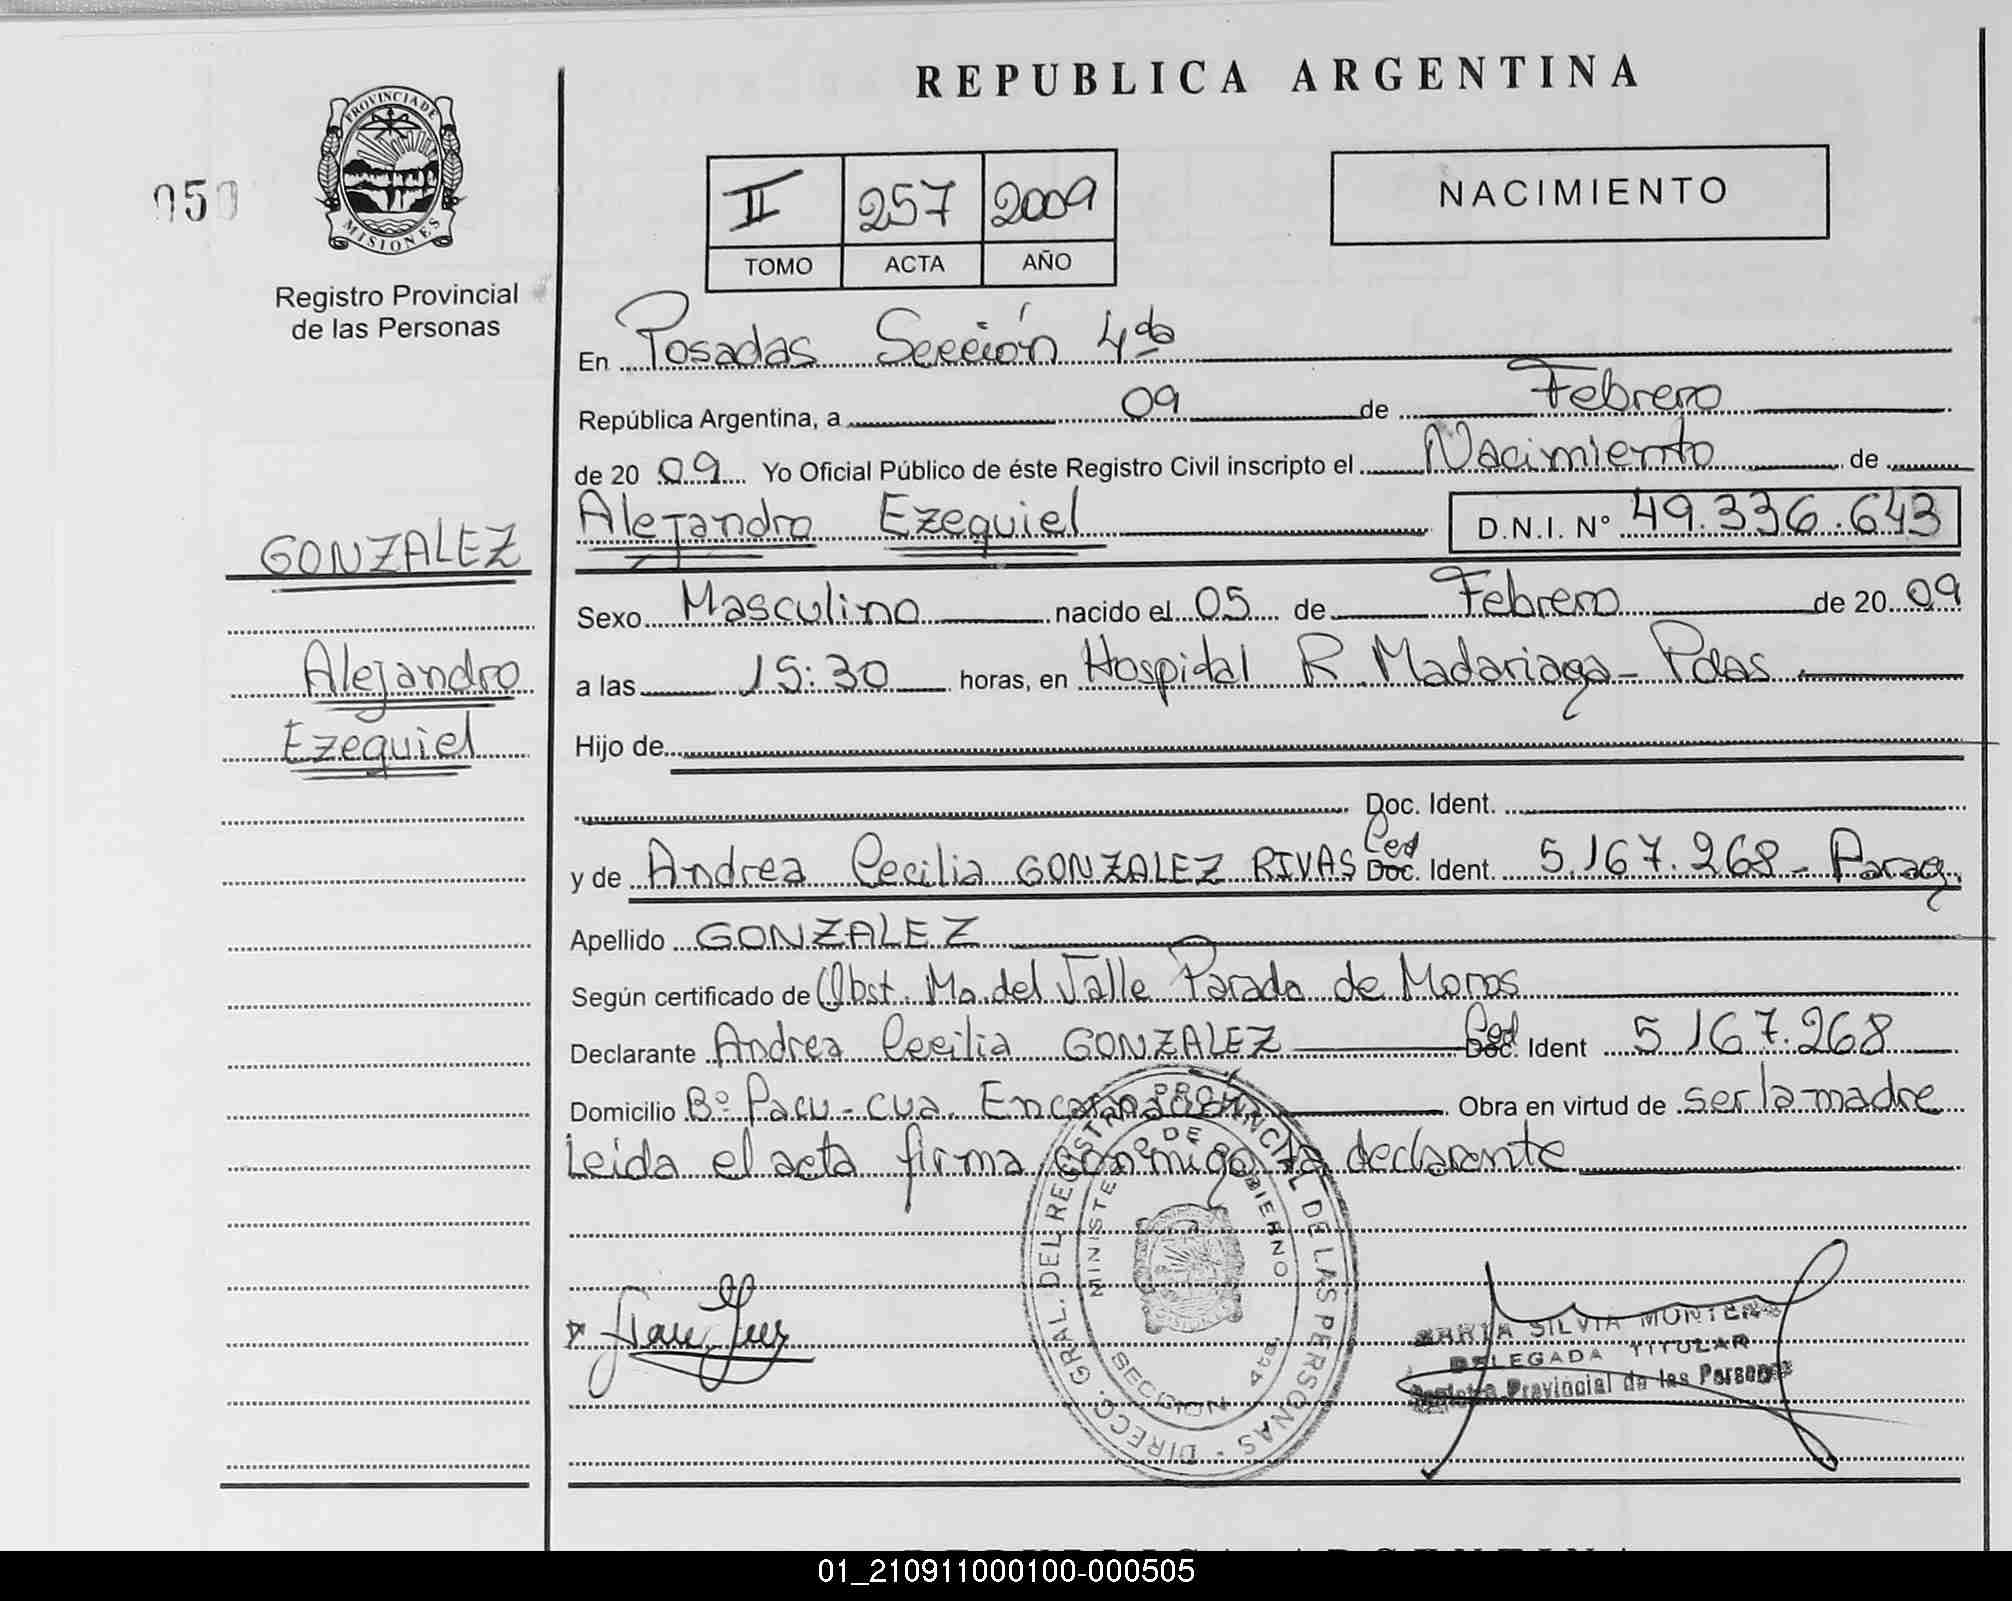 REPUBLICA ARGENTINA
PROVINCIA DE
MISIONES
050
Registro Provincial
de las Personas
II 257 2009
TOMO ACTA AÑO
NACIMIENTO
En Posadas Sección 4ta
República Argentina, a 09 de Febrero
de 20 09 Yo Oficial Público de éste Registro Civil inscripto el Nacimiento de
GONZALEZ
Alejandro Ezequiel D.N.I. N° 49.336.643
Sexo Masculino nacido el 05 de Febrero de 20 09
Alejandro
a las 15:30 horas, en Hospital R. Madariaga - Pdas
Ezequiel
Hijo de
Doc. Ident.
y de Andrea Cecilia GONZALEZ RIVAS Ced Doc. Ident. 5.167.268 - Parag.
Apellido GONZALEZ
Según certificado de Obst. Ma. del Valle Parada de Moros
Declarante Andrea Cecilia GONZALEZ Ced Doc. Ident 5.167.268
Domicilio B° Pacu-cua. Encarnación Obra en virtud de ser la madre
Leida el acta firma conmigo la declarante
DIRECC. GRAL. DEL REGISTRO PROVINCIAL DE LAS PERSONAS
MINISTERIO DE GOBIERNO
SECCION 4ta.
MARTA SILVIA
DELEGADA TITULAR
Registro Provincial de las Personas
01_210911000100-000505